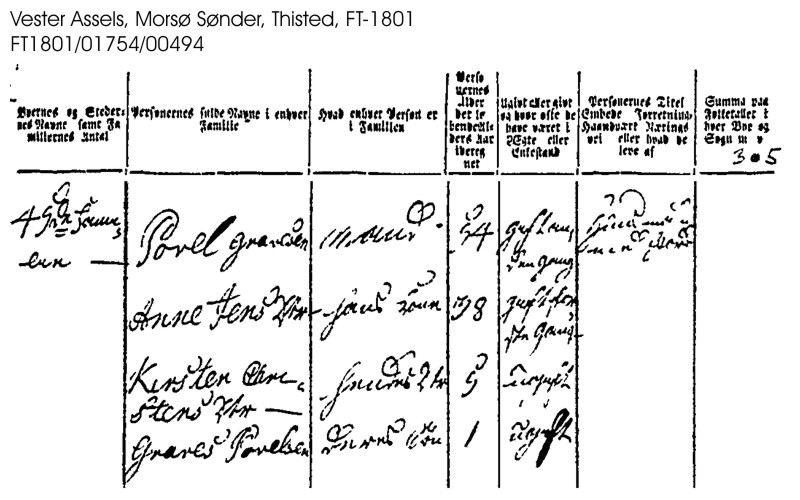 Vester Assels, Morsø Sønder, Thisted, FT-1801
FT1801/01754/00494
Byernes og Steder-
nes Navne samt Fa
miliernes Antal
Personernes fulde Navne i enhver
Familie
Hvad enhver Person er
i Familien
Perso
nernes
Alder
det le
bende Al-
ders Aar
ibereg
net
Ugivt eller givt
og hvor ofte de
have været i
Ægte eller
Enkestand
Personernes Titel
Embede Forretning
Haandværk Nærings
vei eller hvad de
leve af
Summa paa
Folketallet i
hver Bye og
Sogn
305
4
Povel Graversen mand 54
Anne Jens Dtr hans Kone 38
Kirsten Chri-
stens Dtr 5 ugift
Graves Povelsen Deres Søn 1 ugift